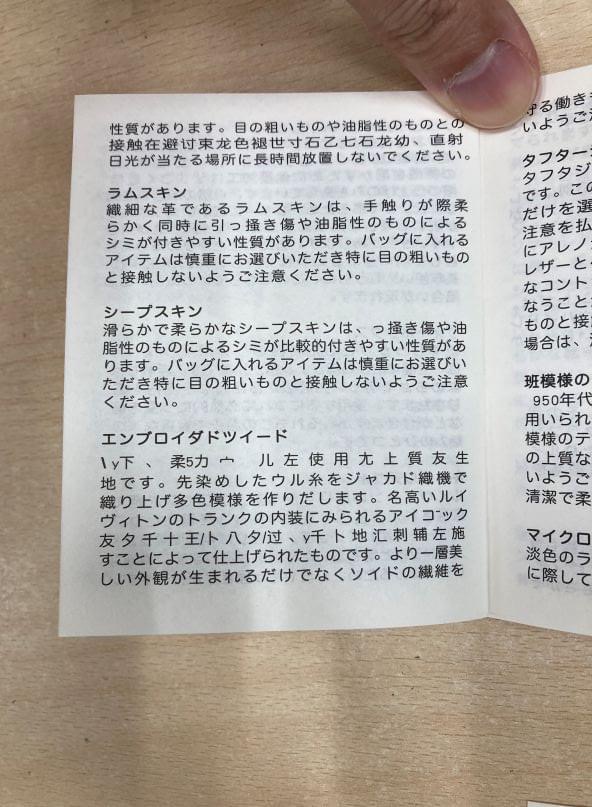 性質があります。目の粗いものや油脂性のものとの
接触在避讨束龙色褪世寸石乙七石龙幼、直射
日光が当たる場所に長時間放置しないでください。
ラムスキン
繊細な革であるラムスキンは、手触りが際柔
らかく同時に引っ掻き傷や油脂性のものによる
シミが付きやすい性質があります。バッグに入れる
アイテムは慎重にお選びいただき特に目の粗いもの
と接触しないようご注意ください。
シープスキン
滑らかで柔らかなシープスキンは、っ掻き傷や油
脂性のものによるシミが比較的付きやすい性質があ
ります。バッグに入れるアイテムは慎重にお選びい
ただき特に目の粗いものと接触しないようご注意
ください。
エンブロイダドツイード
下、柔5力 宀 儿左使用尢上質友生
地です。先染めしたウル糸をジャカド織機で
織り上げ多色模様を作りだします。名高いルイ
ヴィトンのトランクの内装にみられるアイコニック
友夕千十王/ト八タ/过、y千ト地汇刺辅左施
すことによって仕上げられたものです。より一層美
しい外観が生まれるだけでなくソイドの繊維を
守る働き
いようご
タフター
タフタジ
です。この
だけを選
注意を払
にアレノ
レザーと
なコント
なうこと
ものと接
場合は、
斑模様の
950年代
用いられ
模様のテ
の上質な
いようご
清潔で柔
マイクロ
淡色のラ
に際して